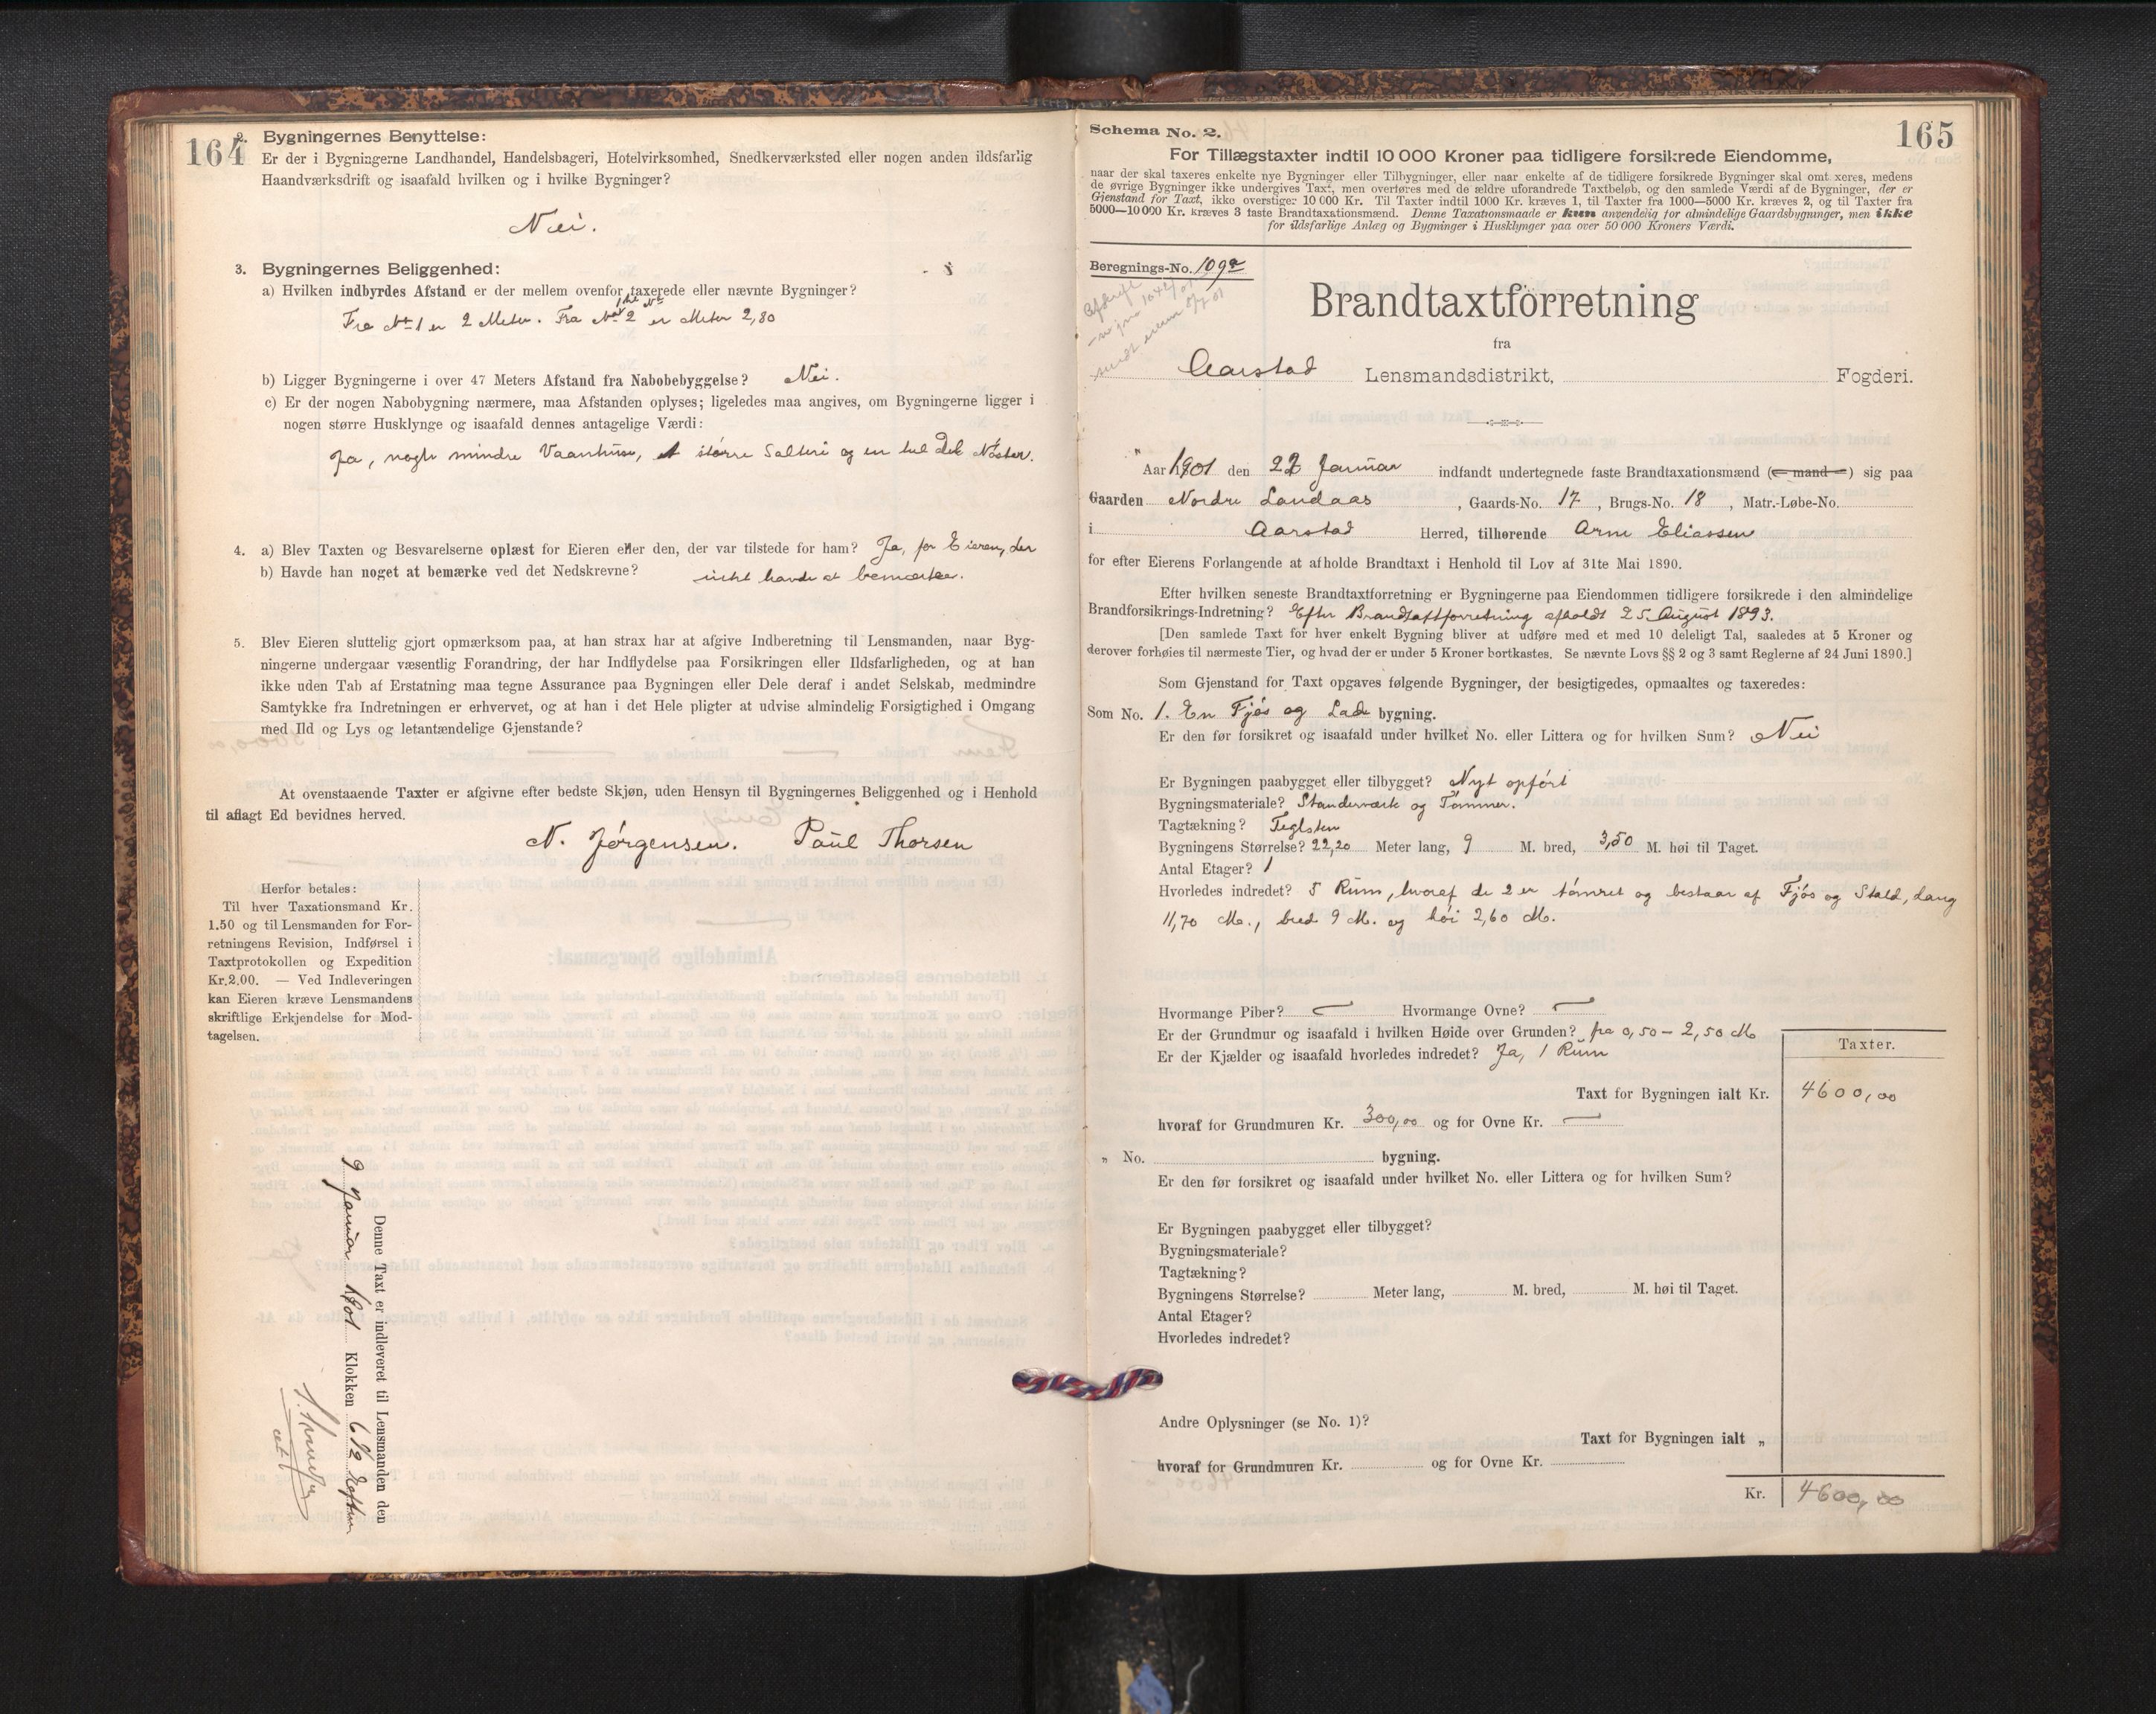 164
2. Bygningernes Benyttelse:
Er der i Bygningerne Landhandel, Handelsbageri, Hotelvirksomhed, Snedkerværksted eller nogen anden ildsfarlig
Haandværksdrift og isaafald hvilken og i hvilke Bygninger?
Nei.
3. Bygningernes Beliggenhed:
a) Hvilken indbyrdes Afstand er der mellem ovenfor taxerede eller nævnte Bygninger?
Fra No 1 er 2 Meter. Fra No 2 er Meter 2,80
b) Ligger Bygningerne i over 47 Meters Afstand fra Nabobebyggelse? Nei.
c) Er der nogen Nabobygning nærmere, maa Afstanden oplyses; ligeledes maa angives, om Bygningerne ligger i
nogen større Husklynge og isaafald dennes antagelige Værdi:
Ja, nogle mindre Vaanhuse, et større Salteri og en hel Del Nöster.
4. a) Blev Taxten og Besvarelserne oplæst for Eieren eller den, der var tilstede for ham? Ja, for Eieren, der
b) Havde han noget at bemærke ved det Nedskrevne? intet havde at bemærke.
5. Blev Eieren sluttelig gjort opmærksom paa, at han strax har at afgive Indberetning til Lensmanden, naar Byg-
ningerne undergaar væsentlig Forandring, der har Indflydelse paa Forsikringen eller Ildsfarligheden, og at han
ikke uden Tab af Erstatning maa tegne Assurance paa Bygningen eller Dele deraf i andet Selskab, medmindre
Samtykke fra Indretningen er erhvervet, og at han i det Hele pligter at udvise almindelig Forsigtighed i Omgang
med Ild og Lys og letantændelige Gjenstande?
At ovenstaaende Taxter er afgivne efter bedste Skjøn, uden Hensyn til Bygningernes Beliggenhed og i Henhold
til aflagt Ed bevidnes herved.
N. Jörgensen. Paul Thorsen
Herfor betales:
Til hver Taxationsmand Kr.
1.50 og til Lensmanden for For-
retningens Revision, Indførsel i
Taxtprotokollen og Expedition
Kr. 2.00. — Ved Indleveringen
kan Eieren kræve Lensmandens
skriftlige Erkjendelse for Mod-
tagelsen.
Denne Taxt er indleveret til Lensmanden den
9 Januar 1901 Klokken 6 1/2 Efterm
165
Schema No. 2.
For Tillægstaxter indtil 10 000 Kroner paa tidligere forsikrede Eiendomme,
naar der skal taxeres enkelte nye Bygninger eller Tilbygninger, eller naar enkelte af de tidligere forsikrede Bygninger skal omt xeres, medens
de øvrige Bygninger ikke undergives Taxt, men overføres med de ældre uforandrede Taxtbeløb, og den samlede Værdi af de Bygninger, der er
Gjenstand for Taxt, ikke overstiger 10 000 Kr. Til Taxter indtil 1000 Kr. kræves 1, til Taxter fra 1000—5000 Kr. kræves 2, og til Taxter fra
5000—10 000 Kr. kræves 3 faste Brandtaxationsmænd. Denne Taxationsmaade er kun anvendelig for almindelige Gaardsbygninger, men ikke
for ildsfarlige Anlæg og Bygninger i Husklynger paa over 50 000 Kroners Værdi.
Beregnings-No. 109a
Brandtaxtforretning
fra
Aarstad Lensmandsdistrikt, Fogderi.
Aar 1901 den 22 Januar indfandt undertegnede faste Brandtaxationsmænd (— mand —) sig paa
Gaarden Nordre Landaas, Gaards-No. 17, Brugs-No. 18, Matr.-Løbe-No.
i Aarstad Herred, tilhørende Arne Eliassen
for efter Eierens Forlangende at afholde Brandtaxt i Henhold til Lov af 31te Mai 1890.
Efter hvilken seneste Brandtaxtforretning er Bygningerne paa Eiendommen tidligere forsikrede i den almindelige
Brandforsikrings-Indretning? Efter Brandtaxtforretning afholdt 25 August 1893.
[Den samlede Taxt for hver enkelt Bygning bliver at udføre med et med 10 deleligt Tal, saaledes at 5 Kroner og
derover forhøies til nærmeste Tier, og hvad der er under 5 Kroner bortkastes. Se nævnte Lovs §§ 2 og 3 samt Reglerne af 24 Juni 1890.]
Som Gjenstand for Taxt opgaves følgende Bygninger, der besigtigedes, opmaaltes og taxeredes:
Som No. 1. En Fjös og Lade bygning.
Er den før forsikret og isaafald under hvilket No. eller Littera og for hvilken Sum? Nei
Er Bygningen paabygget eller tilbygget? Nyt opfört
Bygningsmateriale? Standerværk og Tömmer.
Tagtækning? Teglsten
Bygningens Størrelse? 22,20 Meter lang, 9 M. bred, 3,50 M. høi til Taget.
Antal Etager? 1
Hvorledes indredet? 5 Rum, hvoraf de 2 er tömret og bestaar af Fjös og Stald, lang
11,70 M., bred 9 M. og höi 2,60 M.
Hvormange Piber? — Hvormange Ovne? —
Er der Grundmur og isaafald i hvilken Høide over Grunden? fra 0,50 - 2,50 M
Er der Kjælder og isaafald hvorledes indredet? Ja, 1 Rum
Taxter.
Taxt for Bygningen ialt Kr. 4600,00
hvoraf for Grundmuren Kr. 300,00 og for Ovne Kr. —
„ No. bygning.
Er den før forsikret og isaafald under hvilket No. eller Littera og for hvilken Sum?
Er Bygningen paabygget eller tilbygget?
Bygningsmateriale?
Tagtækning?
Bygningens Størrelse? Meter lang, M. bred, M. høi til Taget.
Antal Etager?
Hvorledes indredet?
Andre Oplysninger (se No. 1)?
Taxt for Bygningen ialt „
hvoraf for Grundmuren Kr. og for Ovne Kr.
Kr. 4600,00